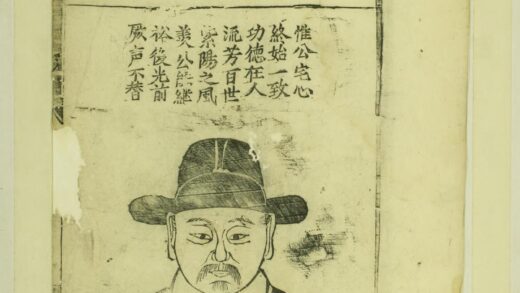 惟公宅心
終始一致
功德在人
流芳百世
紫陽之風
羡公能継
裕後光前
厥声不替